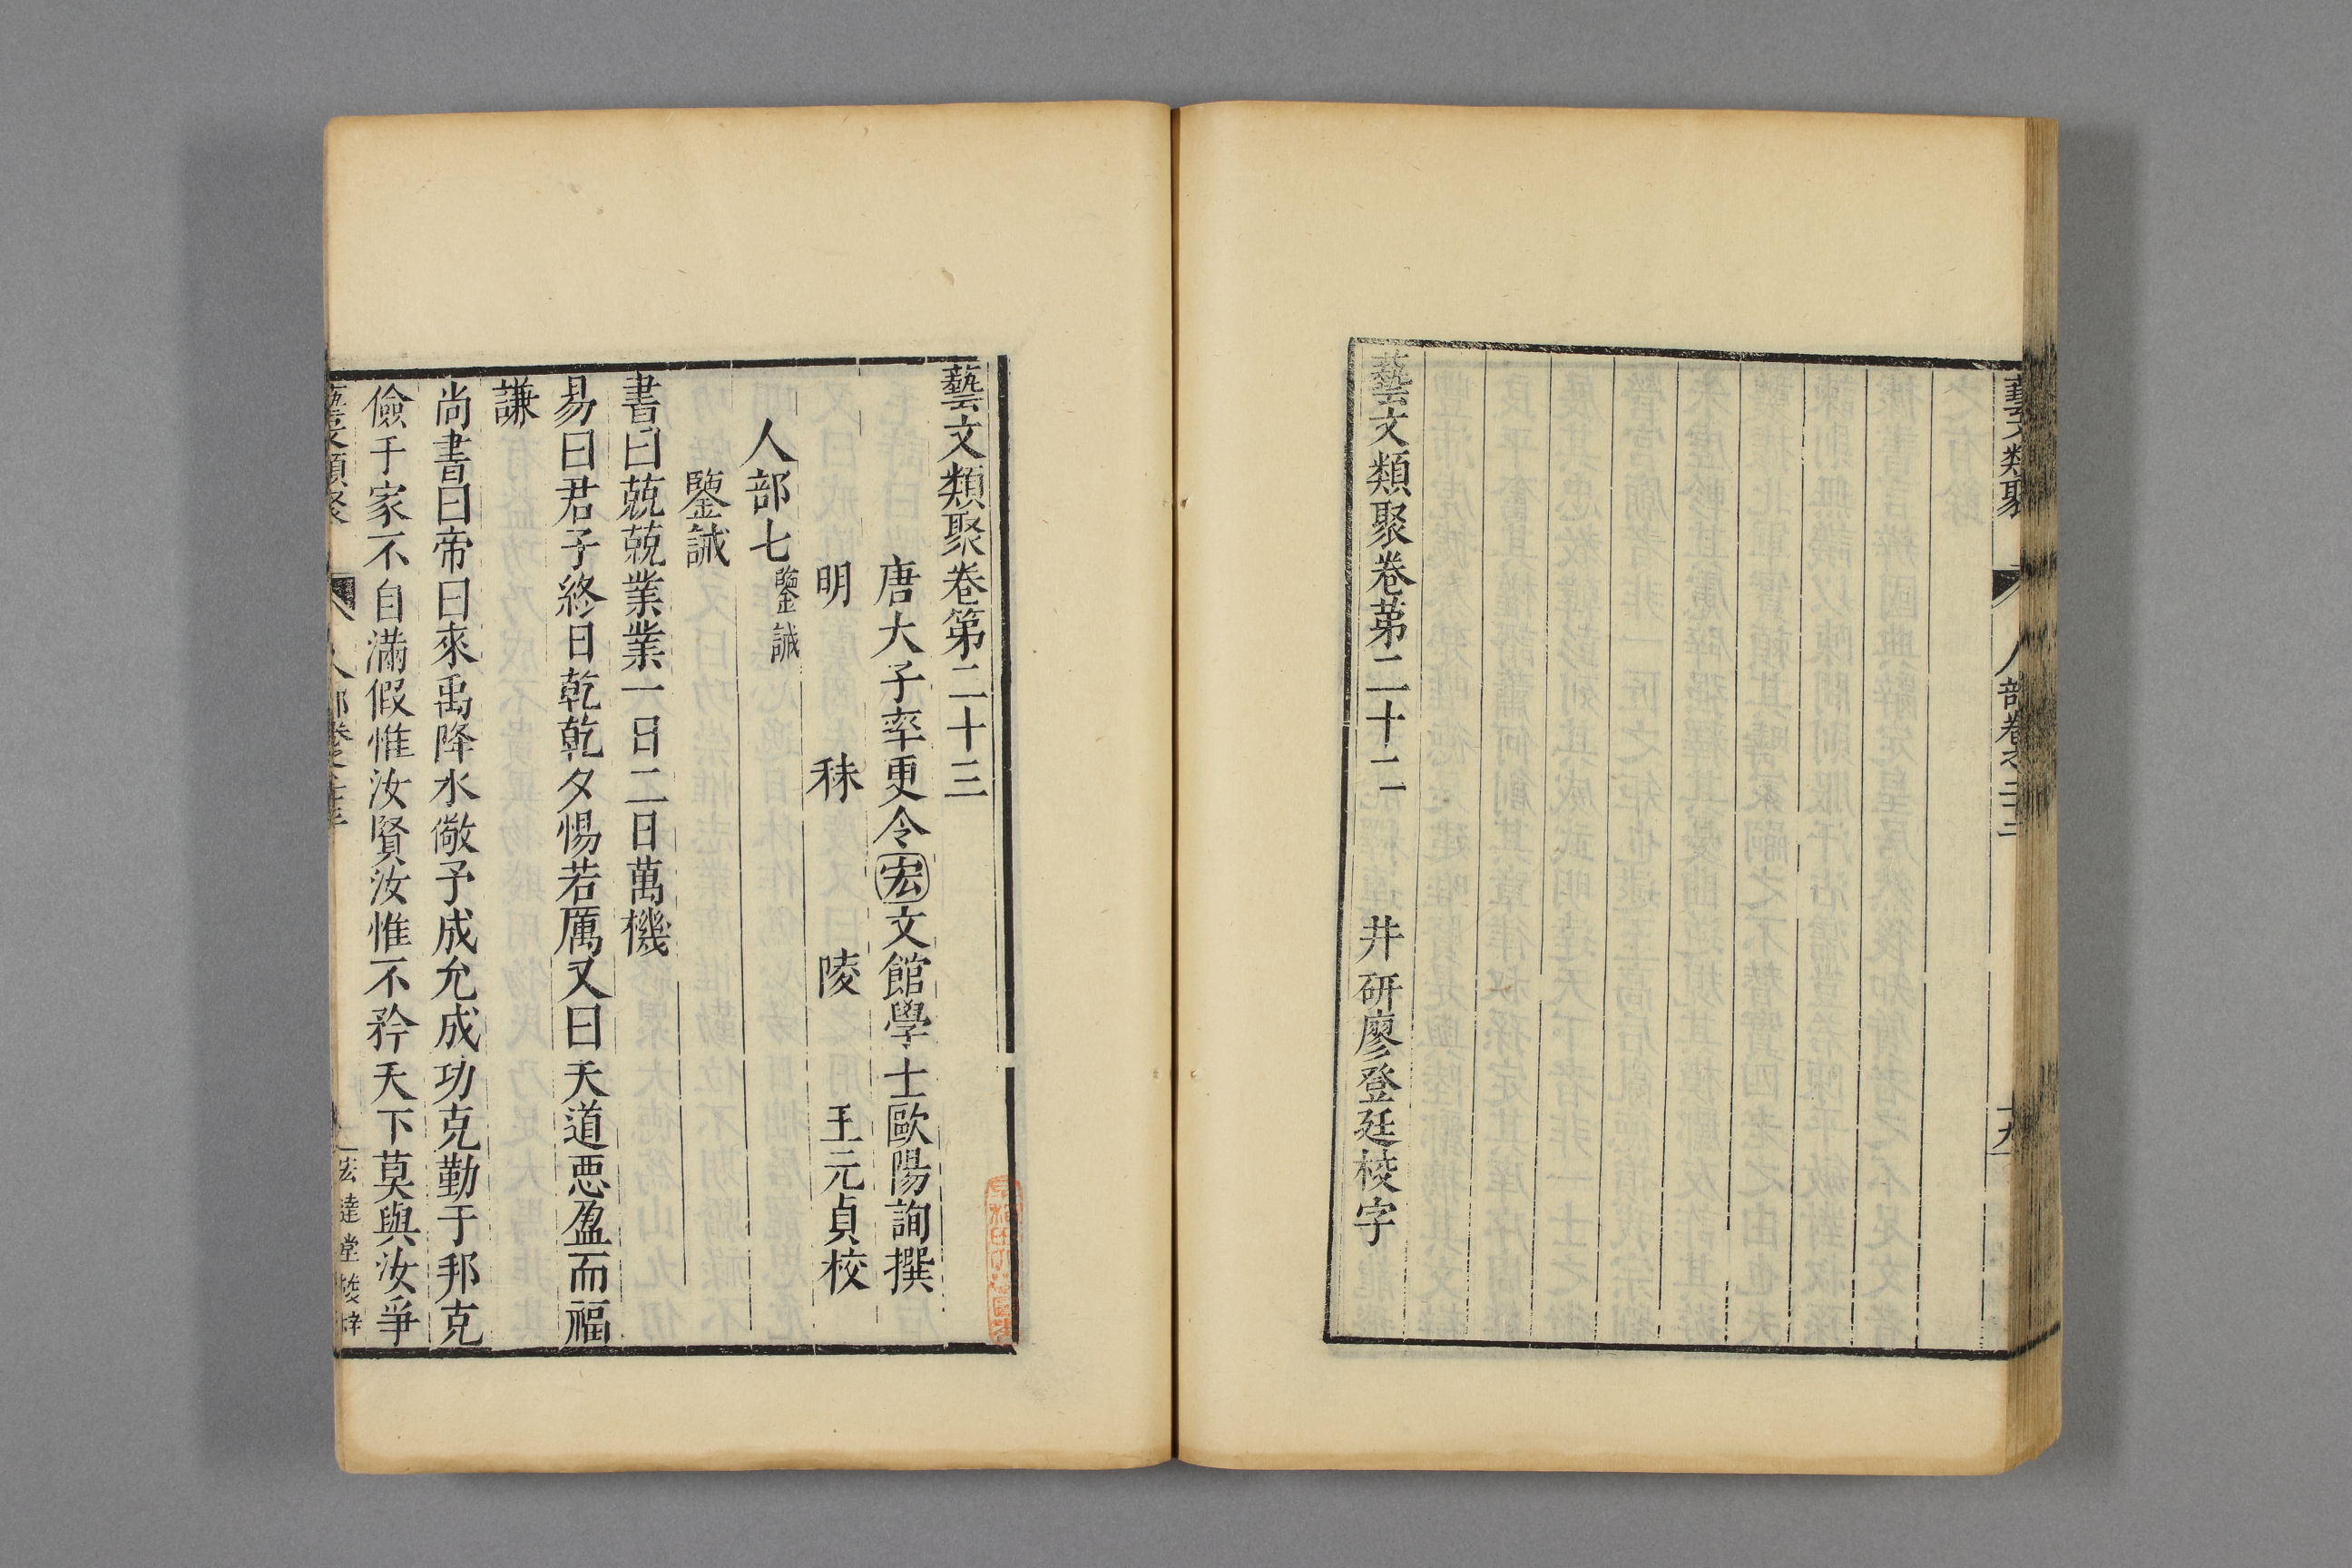 藝文類聚卷第二十二　井研廖登廷校字
藝文類聚卷第二十三
唐大子率更令宏文館學士歐陽詢撰
明　秣　陵　王元貞校
人部七鑒誡
鑒誡
書曰兢兢業業一日二日萬機
易曰君子終日乾乾夕惕若厲又曰天道惡盈而福
謙
尚書曰帝曰來禹降水儆予成允成功克勤于邦克
儉于家不自滿假惟汝賢汝惟不矜天下莫與汝爭
藝文類聚　人部卷之二十三　一　宏達堂校梓